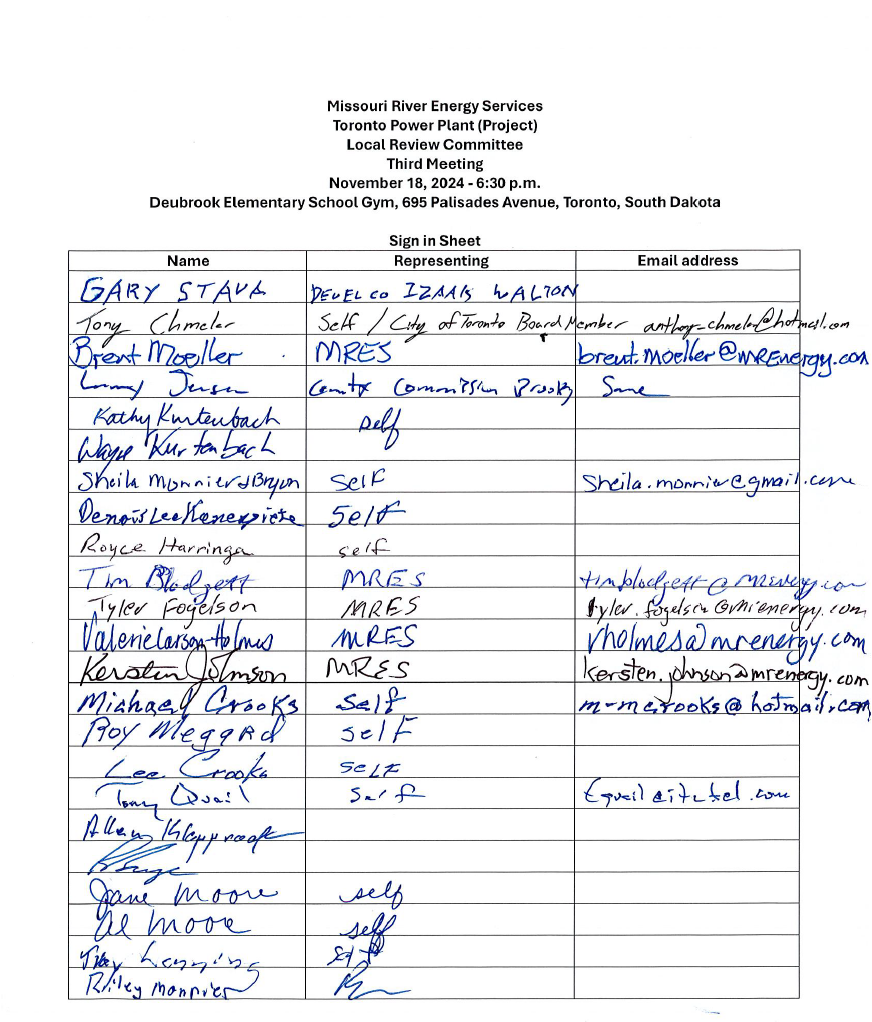 Missouri River Energy Services
Toronto Power Plant (Project)
Local Review Committee
Third Meeting
November 18, 2024 - 6:30 p.m.
Deubrook Elementary School Gym, 695 Palisades Avenue, Toronto, South Dakota
Sign in Sheet
Name Representing Email address
GARY STAVA DEUEL CO IZAAK WALTON
Tony Chmelar Self / City of Toronto Board Member anthony-chmelar@hotmail.com
Brent Moeller MRES brent.moeller@MREnergy.com
Jensen County Commission Same
Kathy Kurtenbach self
Wayne Kurtenbach
Sheila Monnier & Bryon Self Sheila.monnier@gmail.com
Dennis Lee Self
Royce Harringa self
Tim Blodgett MRES tim.blodgett@mrenergy.com
Tyler Fogelson MRES tyler.fogelson@mrenergy.com
Valerie Larson-Holmes MRES vholmes@mrenergy.com
Kersten Johnson MRES kersten.johnson@mrenergy.com
Michael Crooks Self m-mcrooks@hotmail.com
Roy Meggard self
Lee Crooks SELF
Tony Quail Self
Allen
Jane Moore self
Al Moore self
Self
Riley Monnier